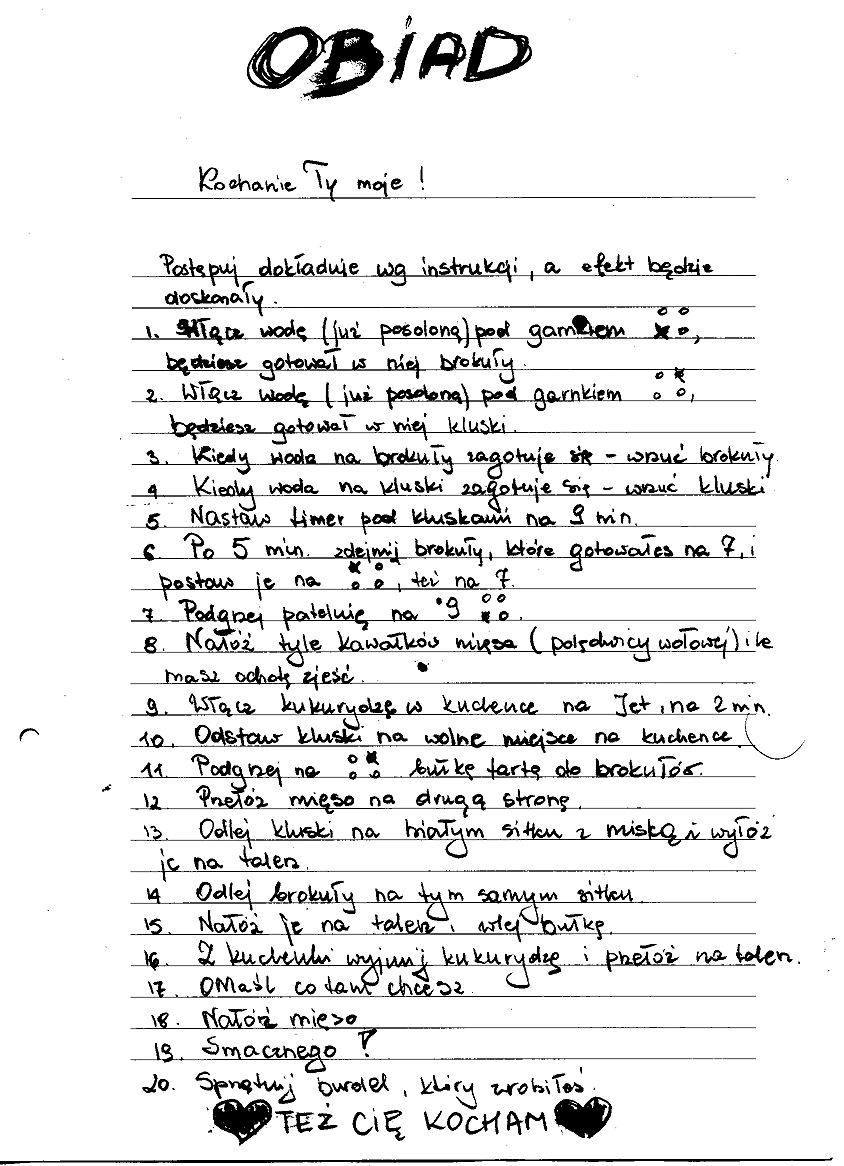 OBIAD
Kochanie Ty moje !
Postępuj dokładnie wg instrukcji, a efekt będzie
doskonały.
1. Włącz wodę (już posoloną) pod garnkiem ,
będziesz gotował w niej brokuły.
2. Włącz wodę ( już posoloną) pod garnkiem ,
będziesz gotował w niej kluski.
3. Kiedy woda na brokuły zagotuje się – wrzuć brokuły
4 Kiedy woda na kluski zagotuje się – wrzuć kluski
5 Nastaw timer pod kluskami na 9 min.
6 Po 5 min. zdejmij brokuły, które gotowałeś na 7, i
postaw je na , też na 7.
7 Podgrzej patelnię na 9 .
8. Nałóż tyle kawałków mięsa ( polędwicy wołowej) ile
masz ochotę zjeść.
9. Włącz kukurydzę w kuchence na Jet, na 2 min.
10. Odstaw kluski na wolne miejsce na kuchence.
11 Podgrzej na bułkę tartę do brokułów.
12 Przełóż mięso na drugą stronę.
13. Odlej kluski na białym sitku z miską i wyłóż
je na talerz.
14 Odlej brokuły na tym samym sitku.
15. Nałóż je na talerz i wlej bułkę.
16. Z kuchenki wyjmij kukurydzę i przełóż na talerz.
17. OMaśl co tam chcesz.
18. Nałóż mięso
19. Smacznego !
20. Sprzątnij burdel, który zrobiłeś.
TEŻ CIĘ KOCHAM